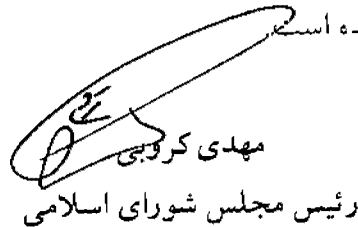 ـده است
مهدی کروبی
رئیس مجلس شورای اسلامی